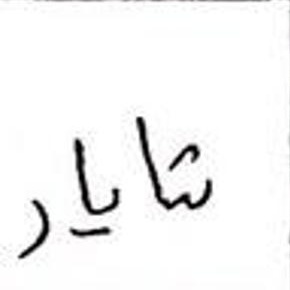 شايار